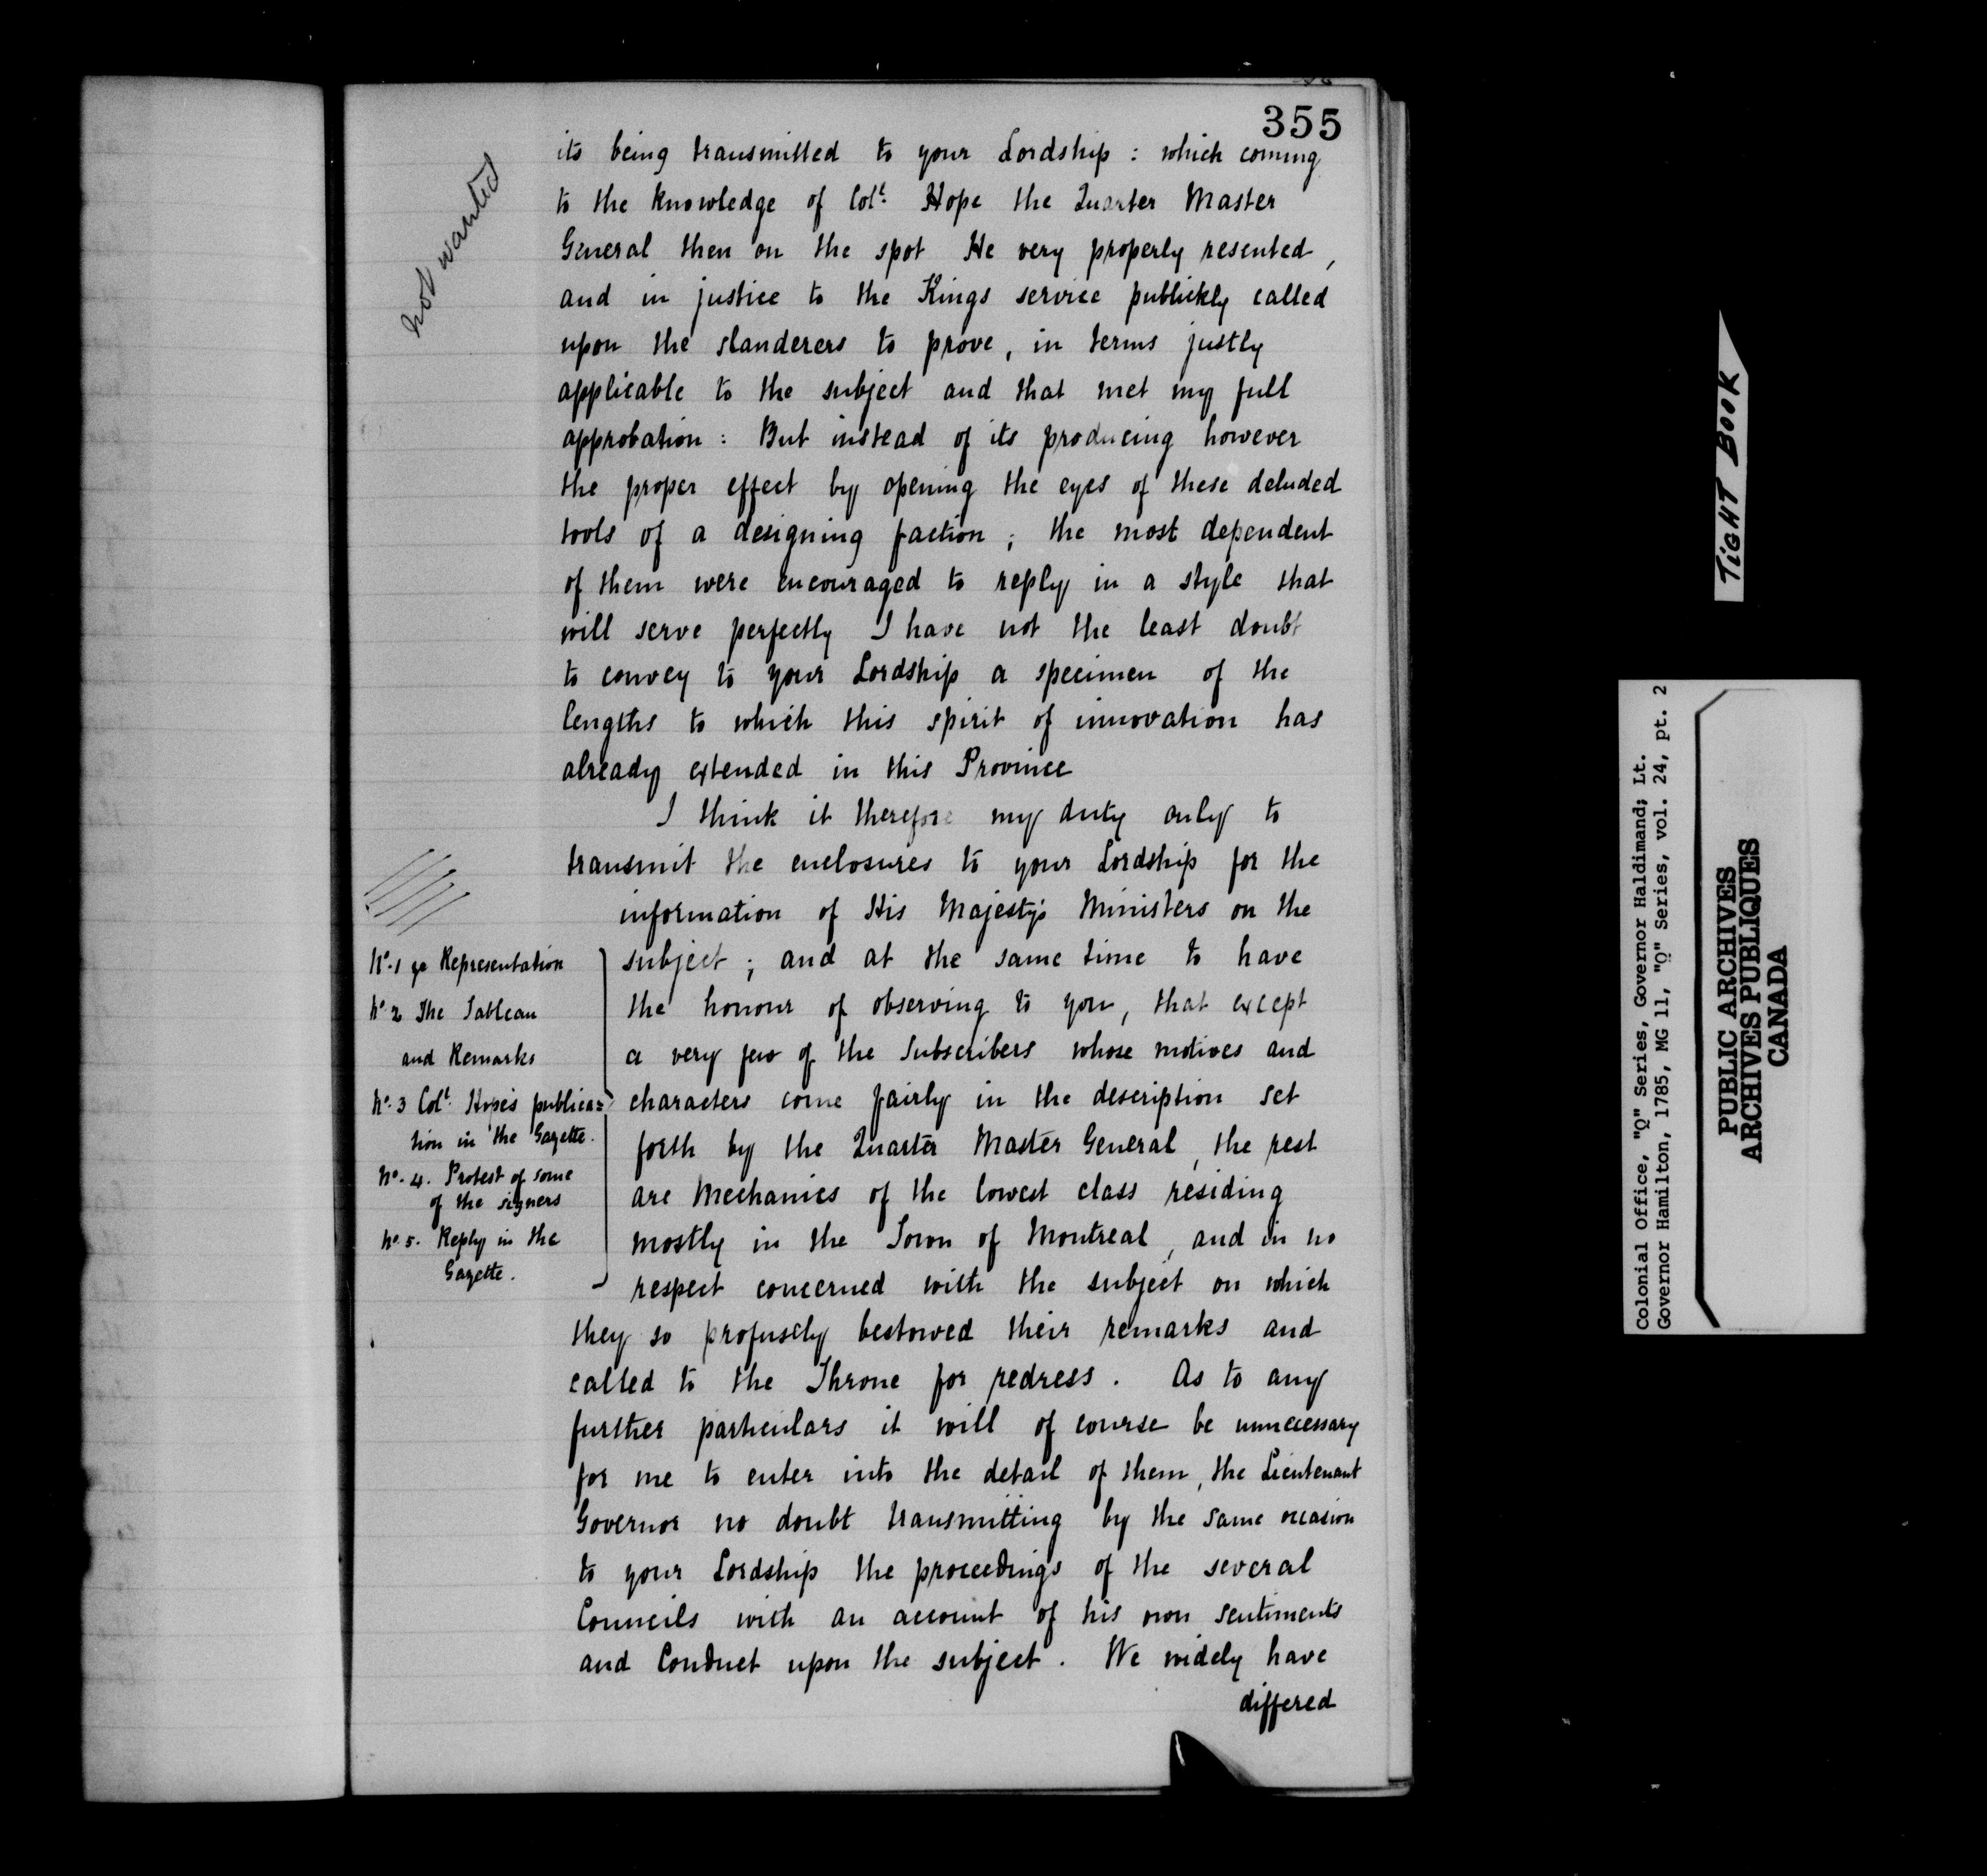 355
not wanted
its being transmitted to your Lordship : which coming
to the knowledge of Colˡ. Hope the Quarter Master
General then on the spot He very properly resented,
and in justice to the Kings service publickly called
upon the slanderers to prove, in terms justly
applicable to the subject and that met my full
approbation : But instead of its producing however
the proper effect by opening the eyes of these deluded
tools of a designing faction ; the most dependent
of them were encouraged to reply in a style that
will serve perfectly I have not the least doubt
to convey to your Lordship a specimen of the
lengths to which this spirit of innovation has
already extended in this Province
I think it therefore my duty only to
transmit the enclosures to your Lordship for the
information of His Majesty's Ministers on the
subject ; and at the same time to have
the honour of observing to you, that except
a very few of the Subscribers whose motives and
characters come fairly in the description set
forth by the Quarter Master General, the rest
are Mechanics of the lowest class residing
mostly in the Town of Montreal, and in no
respect concerned with the subject on which
they so profusely bestowed their remarks and
called to the Throne for redress. As to any
further particulars it will of course be unnecessary
for me to enter into the detail of them, the Lieutenant
Governor no doubt transmitting by the same occasion
to your Lordship the proceedings of the several
Councils with an account of his own sentiments
and Conduct upon the subject. We widely have
differed
Nº.1 ye Representation
Nº.2 The Tableau
and Remarks
Nº.3 Colˡ. Hope's publica=
tion in the Gazette.
Nº.4. Protest of some
of the signers
Nº.5. Reply in the
Gazette.
TIGHT BOOK
Colonial Office, "Q" Series, Governor Haldimand; Lt.
Governor Hamilton, 1785, MG 11, "Q" Series, vol. 24, pt. 2
PUBLIC ARCHIVES
ARCHIVES PUBLIQUES
CANADA